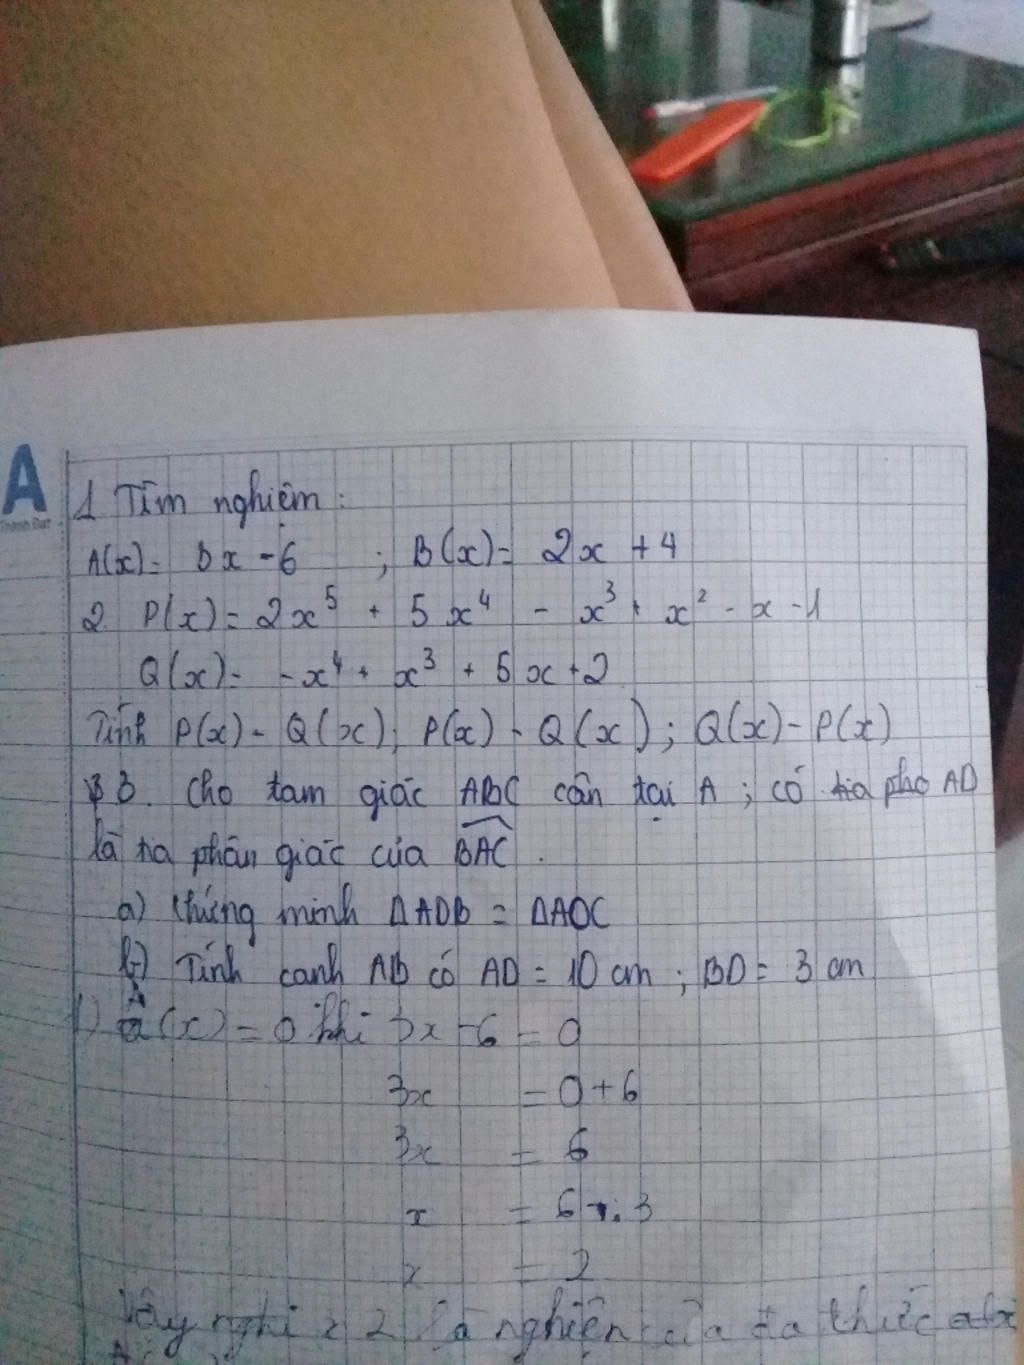 A
Thành Đạt
1 Tìm nghiệm :
A(x) = 3x - 6 ; B(x) = 2x + 4
2 P(x) = 2x⁵ + 5x⁴ - x³ + x² - x - 1
Q(x) = -x⁴ + x³ + 5x + 2
Tính P(x) - Q(x) ; P(x) + Q(x) ; Q(x) - P(x)
3. Cho tam giác ABC cân tại A ; có AD
là tia phân giác của BAC .
a) Chứng minh ΔADB = ΔADC
b) Tính cạnh AB có AD = 10 cm ; BD = 3 cm
1) A(x) = 0 khi 3x - 6 = 0
3x = 0 + 6
3x = 6
x = 6 : 3
x = 2
Vậy 2 là nghiệm của đa thức